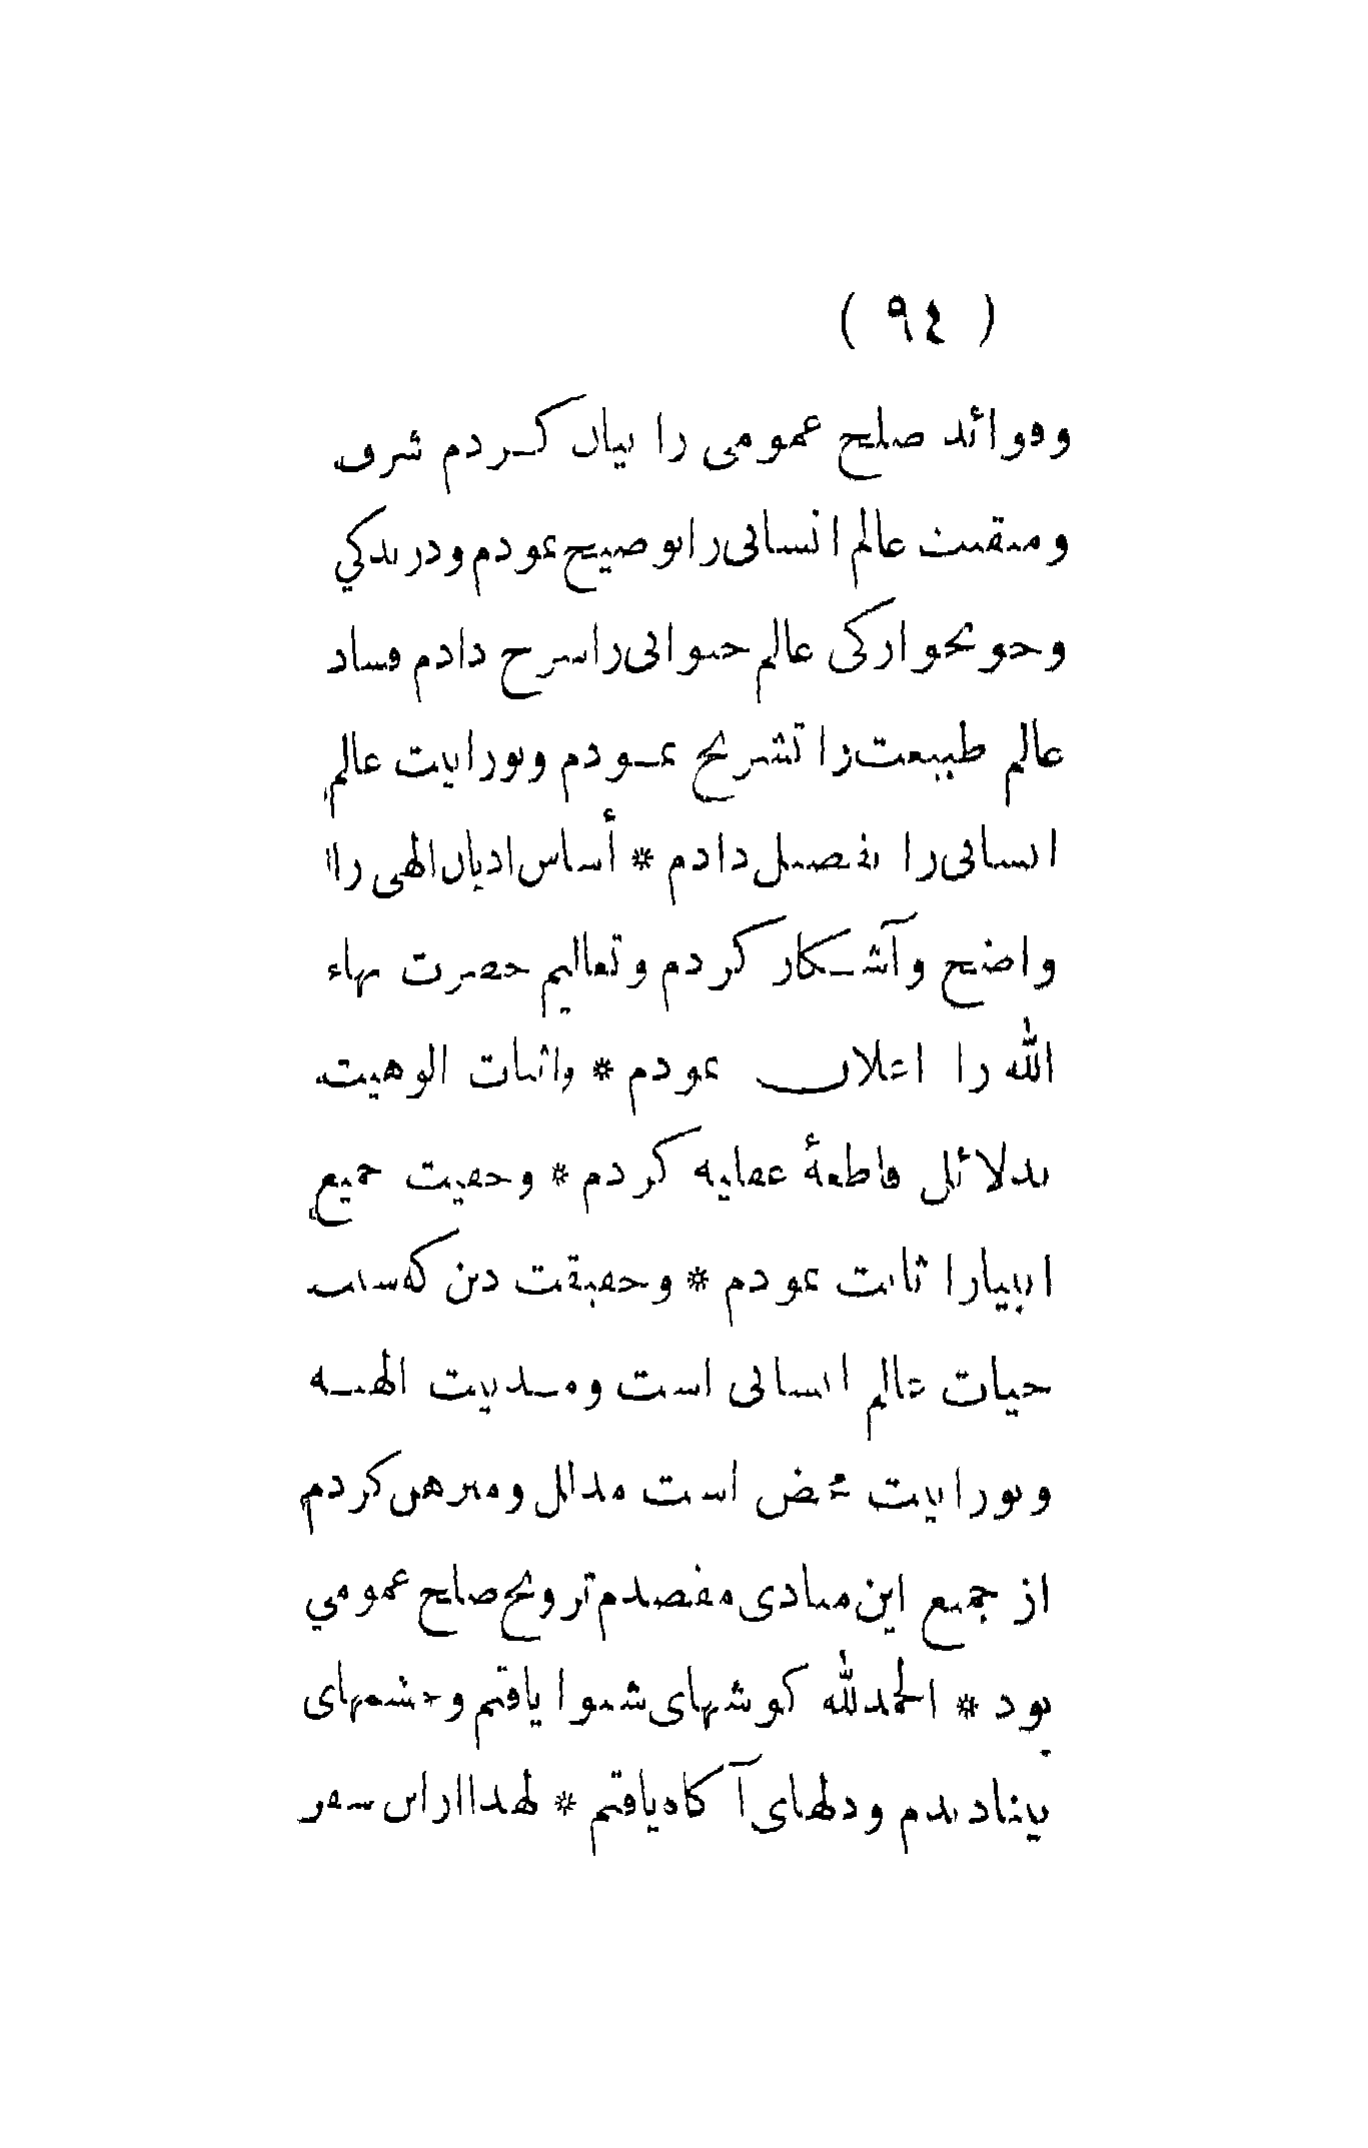 ( ٩٤ )
وفوائد صلح عمومی را بیان کردم شرف
ومنقبت عالم انسانی را توضیح نمودم ودرندکي
وخونخوارکی عالم حیوانی را شرح دادم فساد
عالم طبیعت را تشریح نمودم ونورانیت عالم
انسانی را تفصیل دادم * أساس ادیان الهی را
واضح وآشکار کردم وتعالیم حضرت بهاء
الله را اعلان نمودم * واثبات الوهیت
بدلائل قاطعهٔ عقلیه کردم * وحقیت جمیع
انبیارا ثابت نمودم * وحقیقت دین که سبب
حیات عالم انسانی است ومدنیت الهیه
ونورانیت محض است مدلل ومبرهن کردم
از جمیع این مبادی مقصدم ترویج صلح عمومي
بود * الحمدلله کوشهای شنوا یافتم وچشمهای
بینا دیدم ودلهای آکاه یافتم * لهذا از این سفر